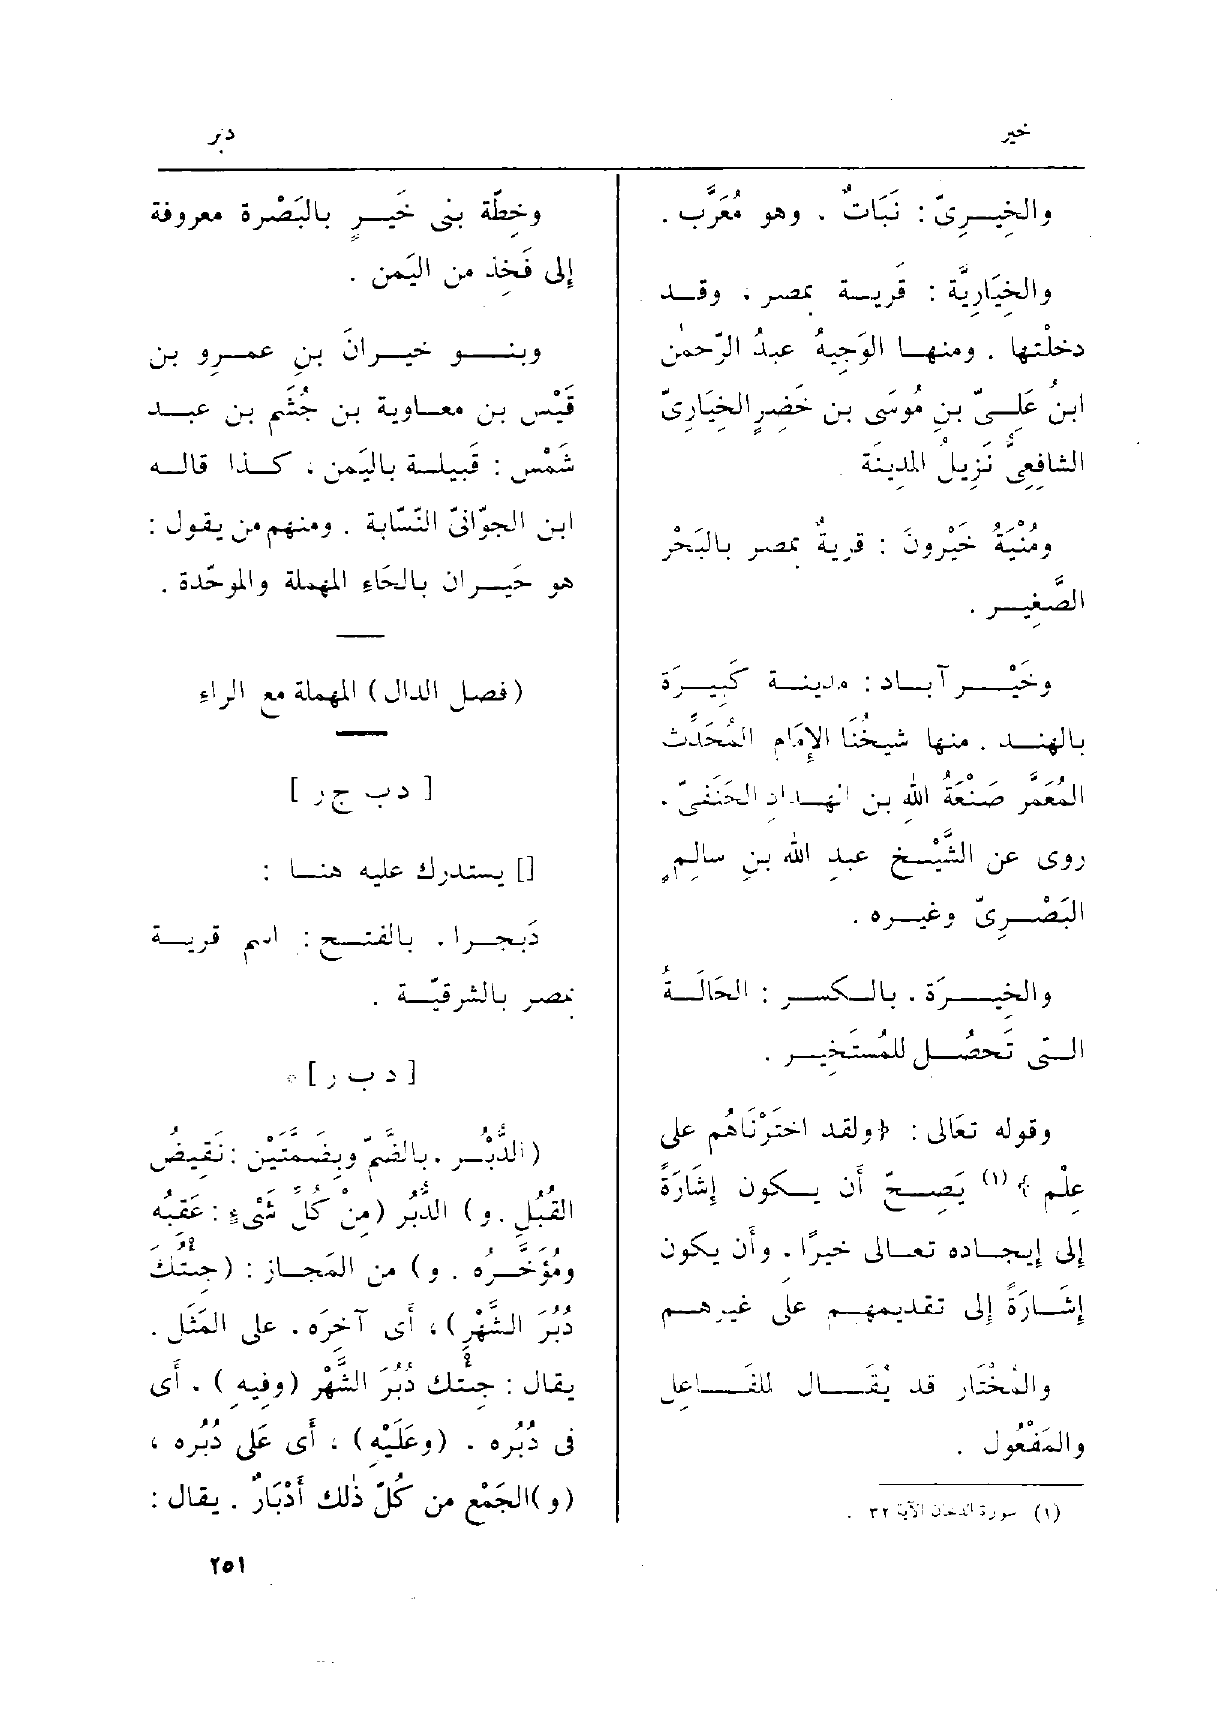 خير
دبر
والخِيــرِىّ : نَبَاتٌ ، وهو مُعَرَّب .
والخِيَارِيَّة : قَريــة بمصــر ، وقــد
دخلْتها . ومنهــا الوَجِيهُ عبدُ الرّحمٰن
ابنُ عَلــىّ بنِ مُوسَى بن خَضِرٍ الخِيَارِىّ
الشافِعِىُّ نَزِيلُ المدِينَة
ومُنْيَةُ خَيْرونَ : قريةٌ بمصر بالبَحْر
الصَّغِيــر .
وخَيْــــر آبــاد : مدينــة كَبِيــرَة
بالهِنــد . منها شيخُنَا الإِمَام المُحَدِّث
المُعَمَّر صَنْعَةُ اللهِ بن الهــدادِ الحَنَفىّ .
روى عن الشَّيْــخ عبدِ اللهِ بنِ سالِمٍ
البَصْــرِىّ وغيــره .
والخِيــــرَة ، بالــكســر : الحَالَــةُ
الــتى تَحصُــل للمُستَخِيــر .
وقوله تعَالى : ﴿ولقد اختَرْنَاهُم على
عِلْم﴾(١) يَصِــحّ أَن يــكون إِشَارَةً
إِلى إِيجــاده تعــالى خيرًا ، وأَن يكون
إِشــارَةً إِلى تقديمهــم على غيرهــم
والمُخْتَار قد يُقَــال للفَــاعِل
والمَفْعُول .
(١) سورة الدخان الآية ٣٢ .
وخِطّة بنى خَيــرٍ بالبَصْرة معروفة
إِلى فَخِذ من اليَمن .
وبنــــو خيــرانَ بنِ عمــرو بن
قَيْس بن معــاوية بن جُشَم بن عبــد
شَمْس : قَبيلــة باليَمن ، كــذا قالــه
ابن الجوّانىّ النّسّابة . ومنهم من يقول :
هو حَيــران بالحَاءِ المهملة والموحّدة .
(فصل الدال) المهملة مع الراء
[ د ب ج ر ]
[] يستدرك عليه هنــا :
دَبجــرا ، بالفتــح : اسم قريــة
بمصر بالشرقيّــة .
[ د ب ر ] *
(الدُّبْــر ، بالضَّمّ وبضَمَّتَيْن : نَقِيضُ
القُبُلِ . و) الدُّبُر (مِنْ كُلِّ شَىْءٍ : عَقِبُه
ومُؤَخَّــرُه . و) من المَجــاز : (جِئتُكَ
دُبُرَ الشَّهْرِ) ، أَى آخِرَه ، على المَثَل .
يقال : جِئتك دُبُرَ الشَّهْر (وفِيهِ ) ، أَى
فى دُبُره . (وعَلَيْهِ) ، أَى عَلى دُبُره ،
(و)الجَمْع من كُلّ ذٰلك أَدْبَارٌ . يقال :
٢٥١